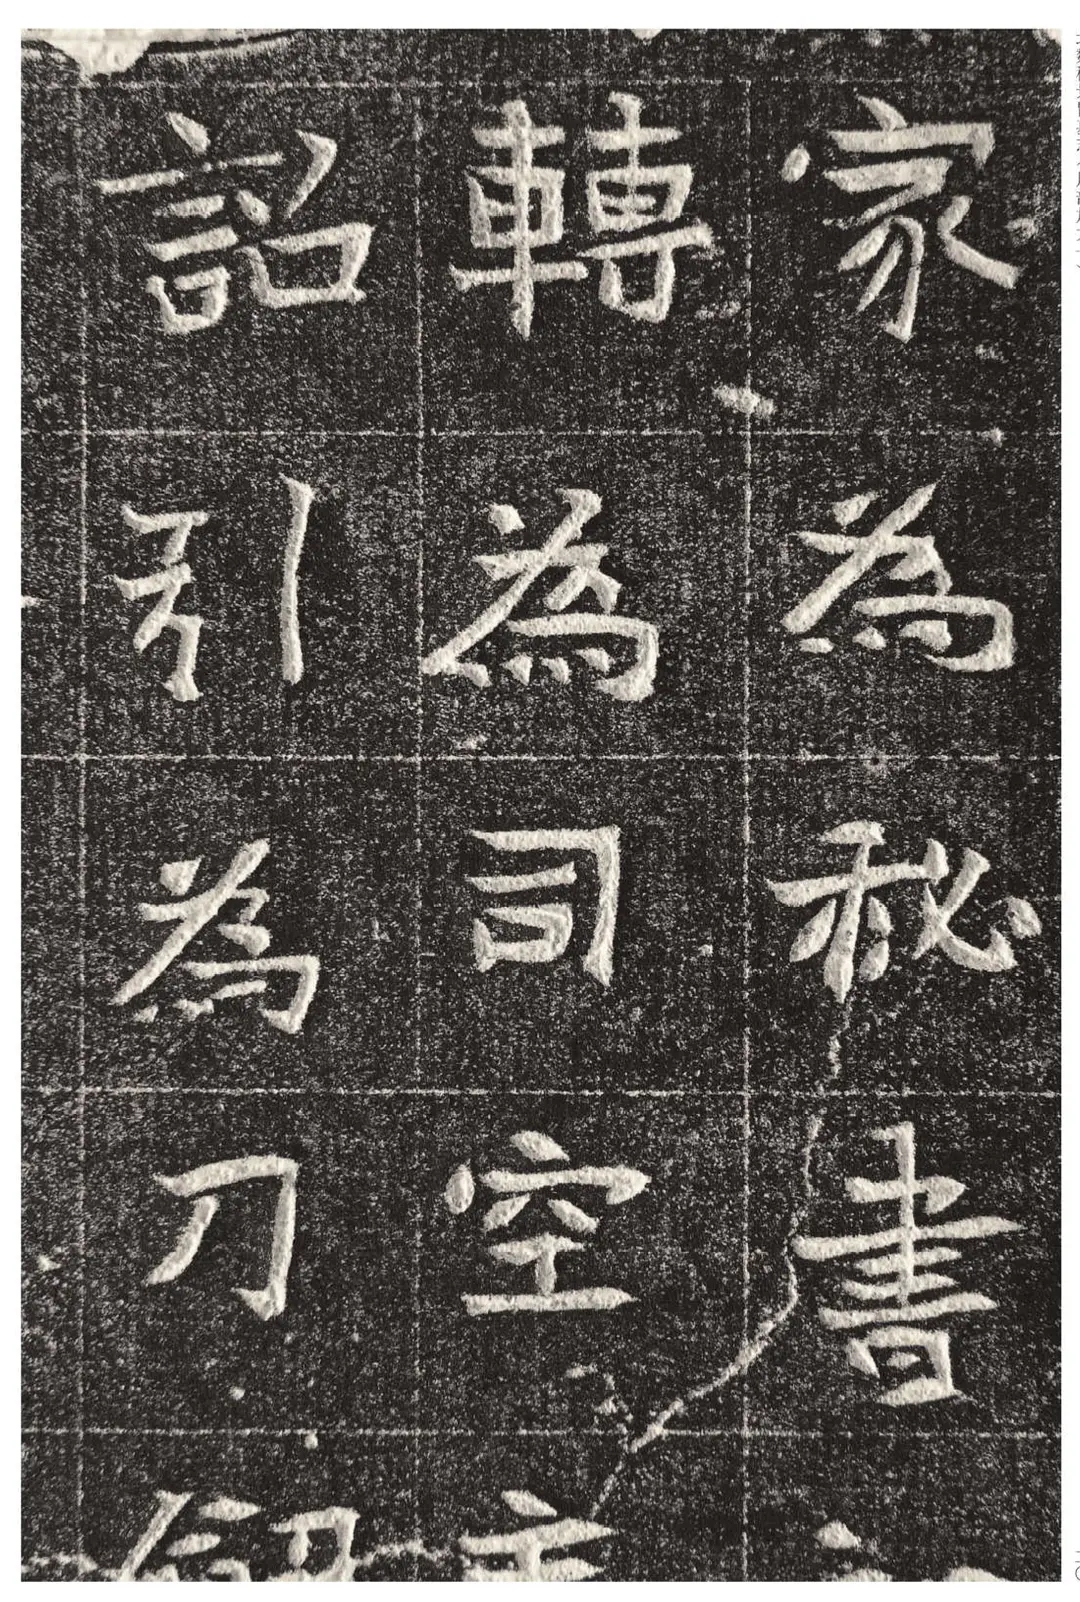 家為秘書
轉為司空
詔引為刀